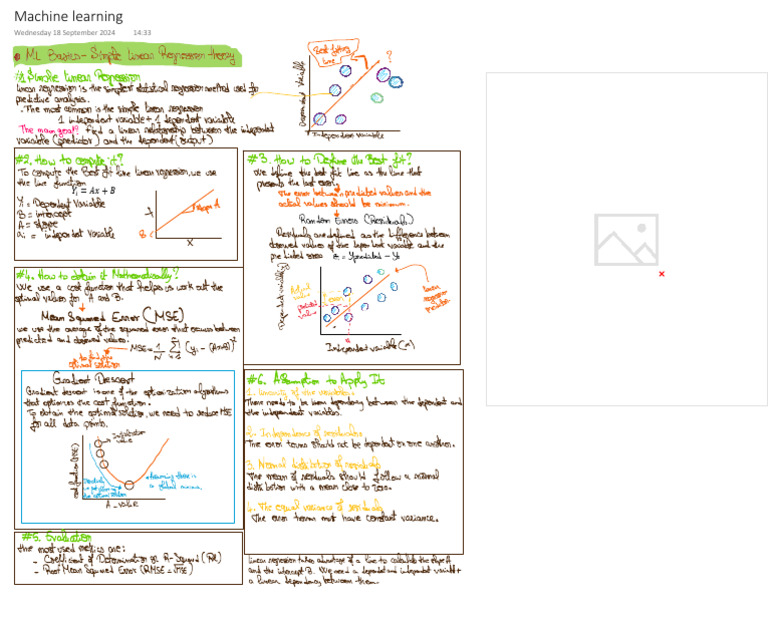 Machine learning
Wednesday 18 September 2024 14:33
ML Basics - Simple Linear Regression theory
#1 Simple Linear Regression
linear regression is the simplest statistical regression method used for
predictive analysis.
. The most common is the simple linear regression
1 independent variable + 1 dependent variable
The main goal? find a linear relationship between the independent
variable (predictor) and the dependent (output)
Best fitting
line
?
Dependent variable
Independent variable
#2. How to compute it?
To compute the Best fit line linear regression, we use
the line function
Yi = Ax + B
Y = Dependent Variable
B = intercept
A = slope
xi = independent variable
Y
slope A
B
X
#3. How to Define the Best fit?
We define the best fit line as the line that
presents the least error.
The error between predicted values and the
actual values should be minimum.
Random Error (Residuals)
Residuals are defined as the difference between
observed values of the dependent variable and the
predicted ones = Ypredicted - Yi
Dependent variable (y)
Actual
value
error
predicted
value
linear
regression
Independent variable (x)
#4. How to obtain it Mathematically?
We use a cost function that helps us work out the
optimal values for A and B.
Mean Squared Error (MSE)
we use the average of the squared error that occurs between
predicted and observed values.
MSE = 1/N Σ (yi - (Ax+B))²
to find the
optimal solution
Gradient Descent
Gradient descent is one of the optimization algorithms
that optimizes the cost function.
To obtain the optimal solution, we need to reduce MSE
for all data points.
Initialization
value
cost function (MSE)
A_value
there is
a global minimum
#5. Evaluation
the most used metrics are:
- Coefficient of Determination or R-Squared (R2)
- Root Mean Squared Error (RMSE = √MSE)
#6. Assumption to Apply It
1. Linearity of the variables
There needs to be linear dependency between the dependent and
the independent variable.
2. Independence of residuals
The error terms should not be dependent on one another.
3. Normal distribution of residuals
The mean of residuals should follow a normal
distribution with a mean close to zero.
4. The equal variance of residuals
The error terms must have constant variance.
linear regression takes advantage of a line to calculate the slope A
and the intercept B. We need a dependent and independent variable +
a linear dependency between them.